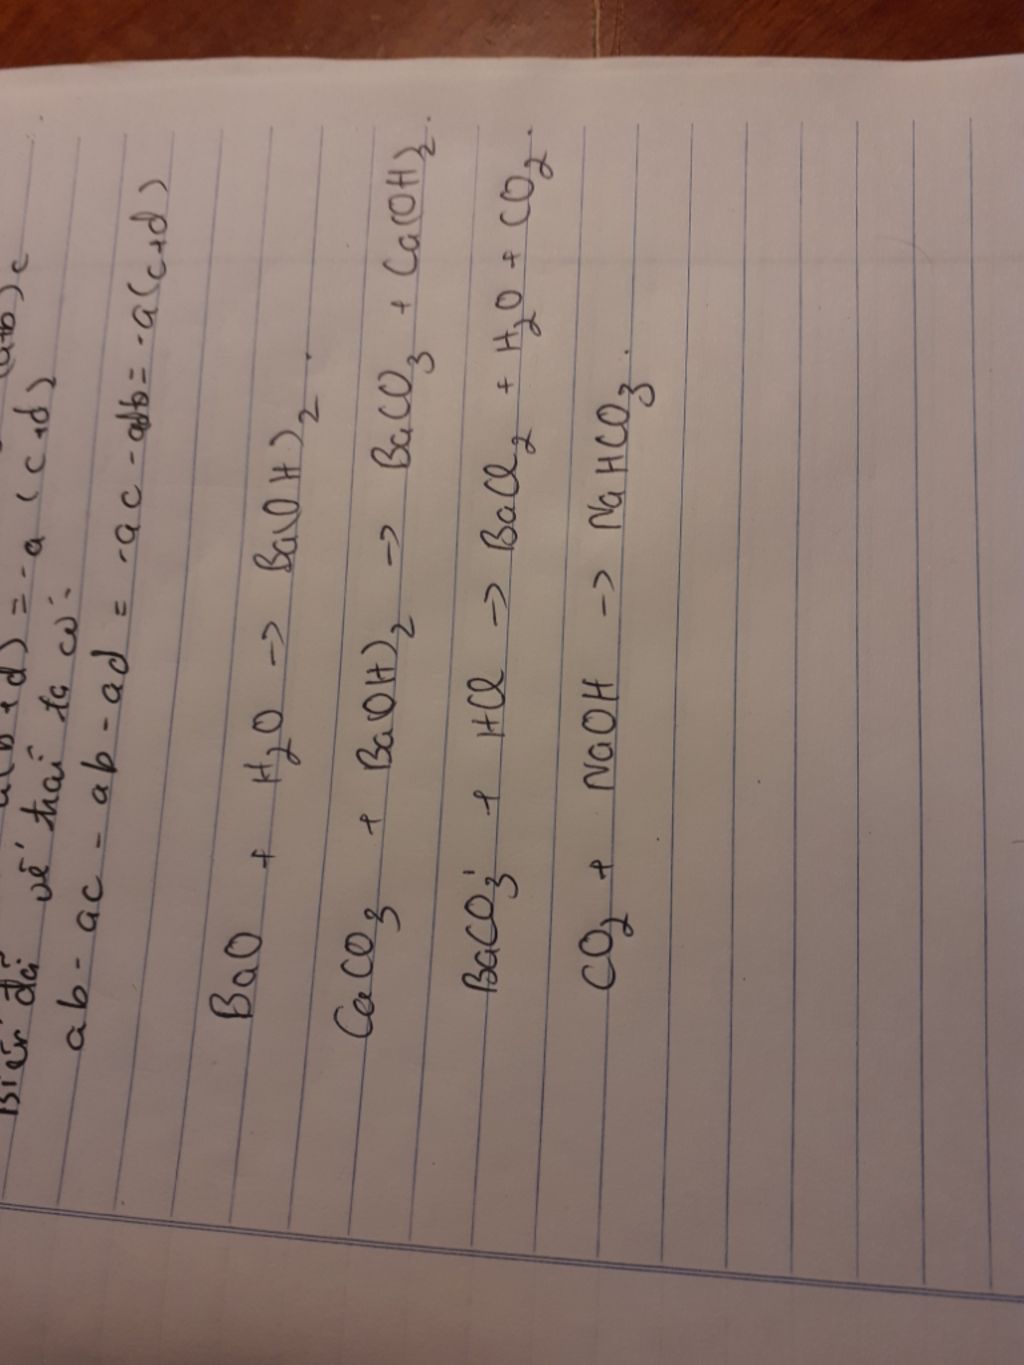 (a+b)c
+d) = -a (c+d)
Biến đổi vế trái ta có:
ab - ac - ab - ad = -ac - adb = -a(c+d)
BaO + H₂O → Ba(OH)₂.
CaCO₃ + Ba(OH)₂ → BaCO₃ + Ca(OH)₂.
BaCO₃ + HCl → BaCl₂ + H₂O + CO₂.
CO₂ + NaOH → NaHCO₃.